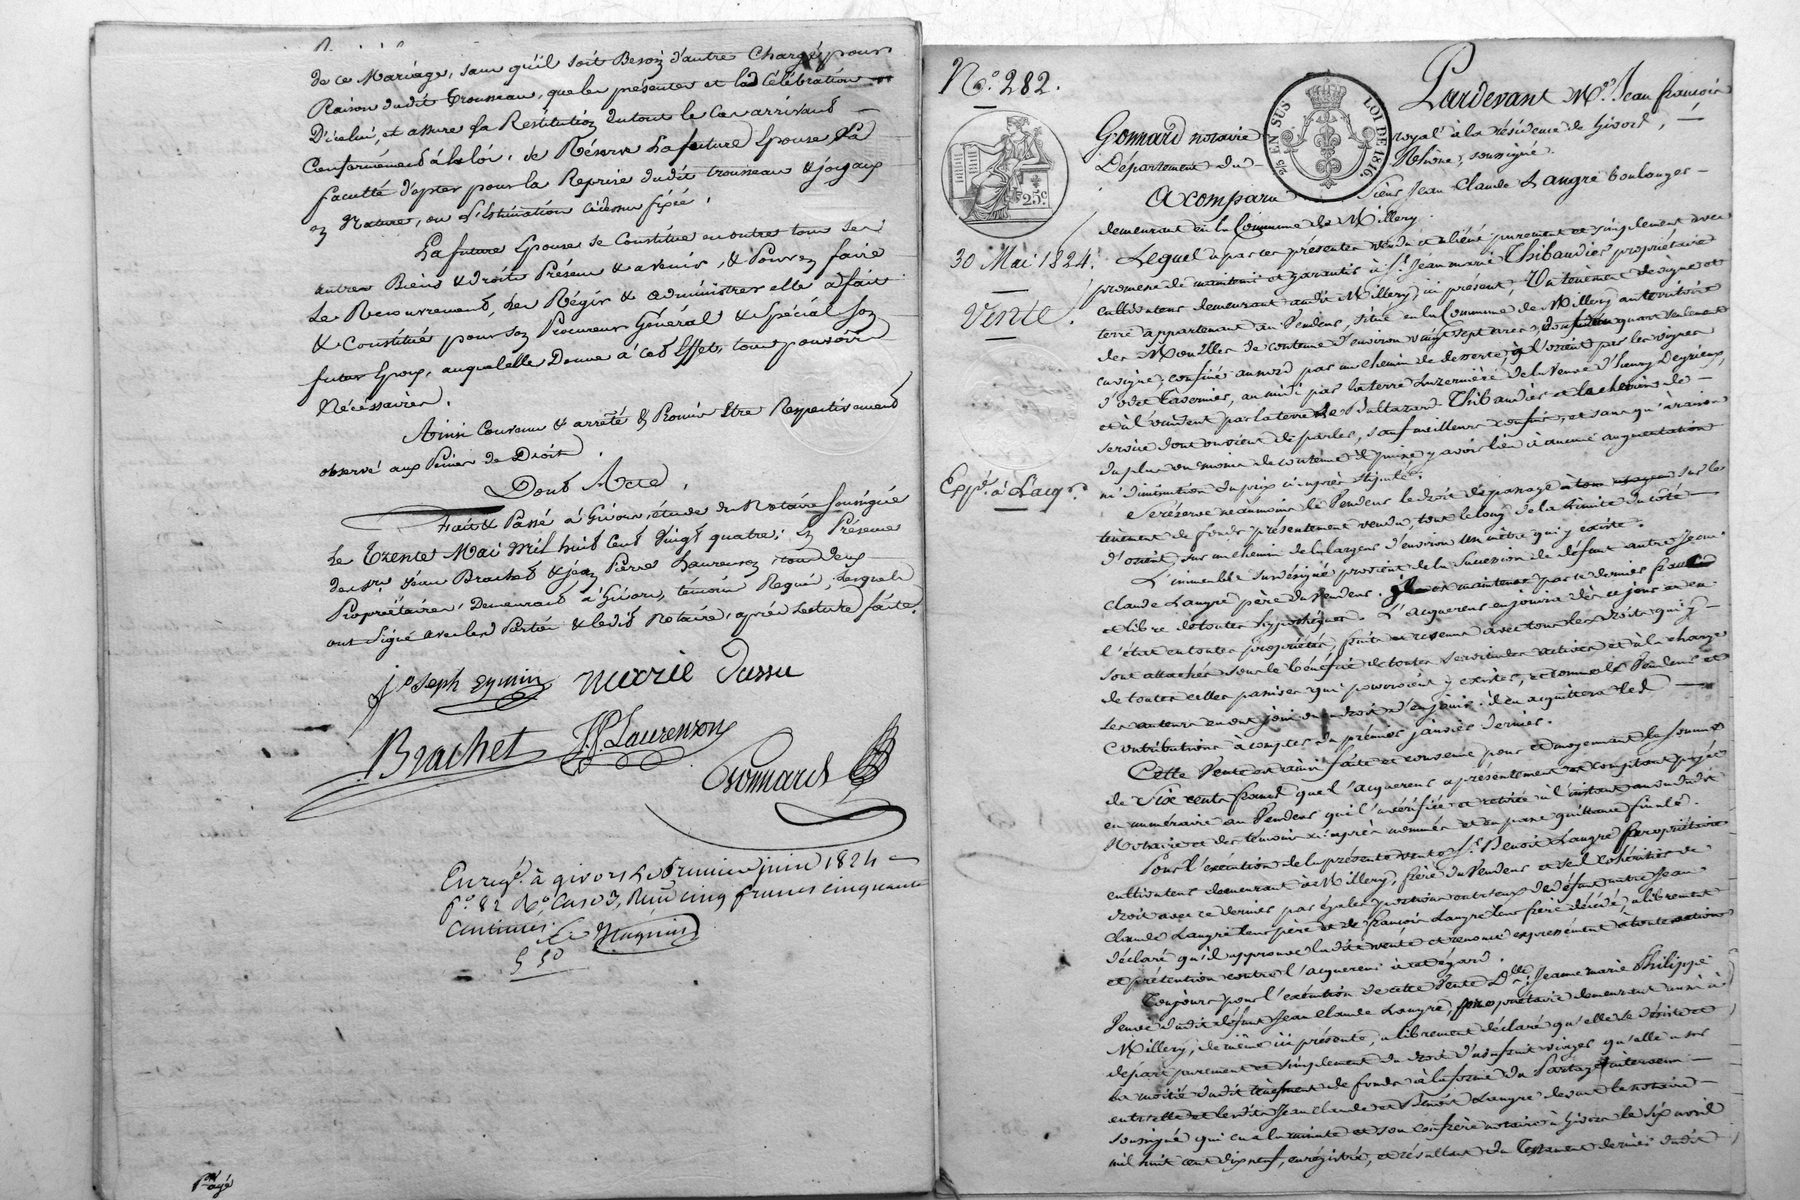 de ce Mariage, sans qu'il soit Besoin d'autre Charge, pour
Raison dudit trousseau, que les présentes et la Célébration
D'icelui, et assure sa Restitution dutout le cas arrivant
Conformément à la loi, se Réserve La future Epouse La
faculté d'opter pour la Reprise dudit trousseau & joyaux
en Nature, ou L'Estimation cidessus fixée.
La future Epouse se Constitue en outre tous ses
autres Biens & droits Présens & avenir, & Pour en faire
Le Recouvrement, les Régir & administrer elle a fait
& Constitué pour son Procureur Général & Spécial Son
futur Epoux, auquel elle Donne à cet Effet, tous pouvoirs
Nécessaires.
Ainsi Convenu & arrêté & Promis Etre Respectivement
observé aux Peines de Droit.
Dont Acte,
Fait & Passé à Givors, étude du Notaire soussigné
Le Trente Mai mil huit cent Vingt quatre; En Présence
des srs Jean Brachet & jean Pierre Laurenson tous deux
Propriétaires, Demeurant à Givors, témoins Requis, Lesquels
ont Signé avec les Parties & ledit Notaire, après Lecture faite.
joseph eymin marie Jussu
Brachet J.P. Laurenson
Gonnard
Enregé. à givors Le premier juin 1824
fo. 82 Ro, Case 3, Reçu cinq francs cinquante
Centimes.
5 50
No. 282.
Pardevant Me. Jean françois
Gonnard notaire royal à la résidence de Givors,
Département du Rhône, soussigné.
2/5 EN SUS
LOI DE 1816.
25c
A comparu Sieur Jean Claude Langre boulanger
demeurant en la Commune de Millery.
30 Mai 1824.
Vente.
Expé. à l'acqr.
Lequel a par ces présentes vendu et aliéné purement et simplement avec
promesse de maintenir et garantir à Sr. Jean marie Thibaudier propriétaire
cultivateur demeurant audit Millery, ici présent, Un tènement de vigne et
terre appartenant au Vendeur, situé en la Commune de Millery au territoire
des Mouilles de contenue d'environ vingt sept ares, dont un quart seulement
en vigne; confiné au nord par un chemin de desserte, à l'orient par les vignes
d'Odet Tavernier, au midi par la terre Luzernière de la Veuve d'henry Deyrieux,
et à l'occident par la terre de Baltazard Thibaudier et le chemin de
service dont on vient de parler, sauf meilleurs confins, et sans qu'à raison
du plus ou moins de contenue il puisse y avoir lieu à aucune augmentation
ni diminution du prix ci après stipulé.
Se réserve néanmoins le Vendeur le droit de passage sur le
tènement de fonds présentement vendu, tout le long de la limite du côté
d'orient, sur un chemin de la largeur d'environ un mètre qui y existe.
L'immeuble susdésigné provient de la Succession de défunt autre Jean
Claude Langre père du vendeur. Il est maintenu par ce dernier franc
et libre de toutes hypothèques. L'acquéreur en jouira dès ce jour en
l'état en toute propriété, fruits et revenus avec tous les droits qui y
sont attachés sous le bénéfice de toutes servitudes actives et à la charge
de toutes celles passives qui pourroient y exister, et comme le Vendeur et
ses auteurs en ont joui ou eu droit d'en jouir. il en acquittera les
Contributions à compter du premier janvier dernier.
Cette Vente est ainsi faite et convenue pour et moyennant la somme
de Six cents francs que l'acquéreur a présentement et comptant payée
en numéraire au Vendeur qui l'a vérifiée et retirée à l'instant au vu dudit
Notaire et des témoins ci après nommés et en passe quittance finale.
Pour l'exécution de la présente vente Sr. Benoit Langre propriétaire
cultivateur demeurant à Millery, frère du Vendeur et seul cohéritier de
droit avec ce dernier par égales portions entr'eux de défunt autre Jean
Claude Langre leur père et de françois Langre leur frère décédé, a librement
déclaré qu'il approuve ladite vente et renonce expressément à toute action
et prétention contre l'acquéreur à cet égard.
Toujours pour l'exécution de cette Vente Dlle. Jeanne marie Philippe
Veuve dudit défunt Jean Claude Langre, propriétaire demeurant aussi à
Millery, de même ici présente, a librement déclaré qu'elle se désiste et
départ purement et simplement du droit d'usufruit viager qu'elle a sur
la moitié dudit tènement de fonds à la forme du Partage intervenu
entr'elle et lesdits Jean Claude et Benoit Langre devant le notaire
soussigné qui en a la minute et son confrère notaire à Givors le six avril
mil huit cent dix neuf, enregistré, et résultant du Testament dernier dudit